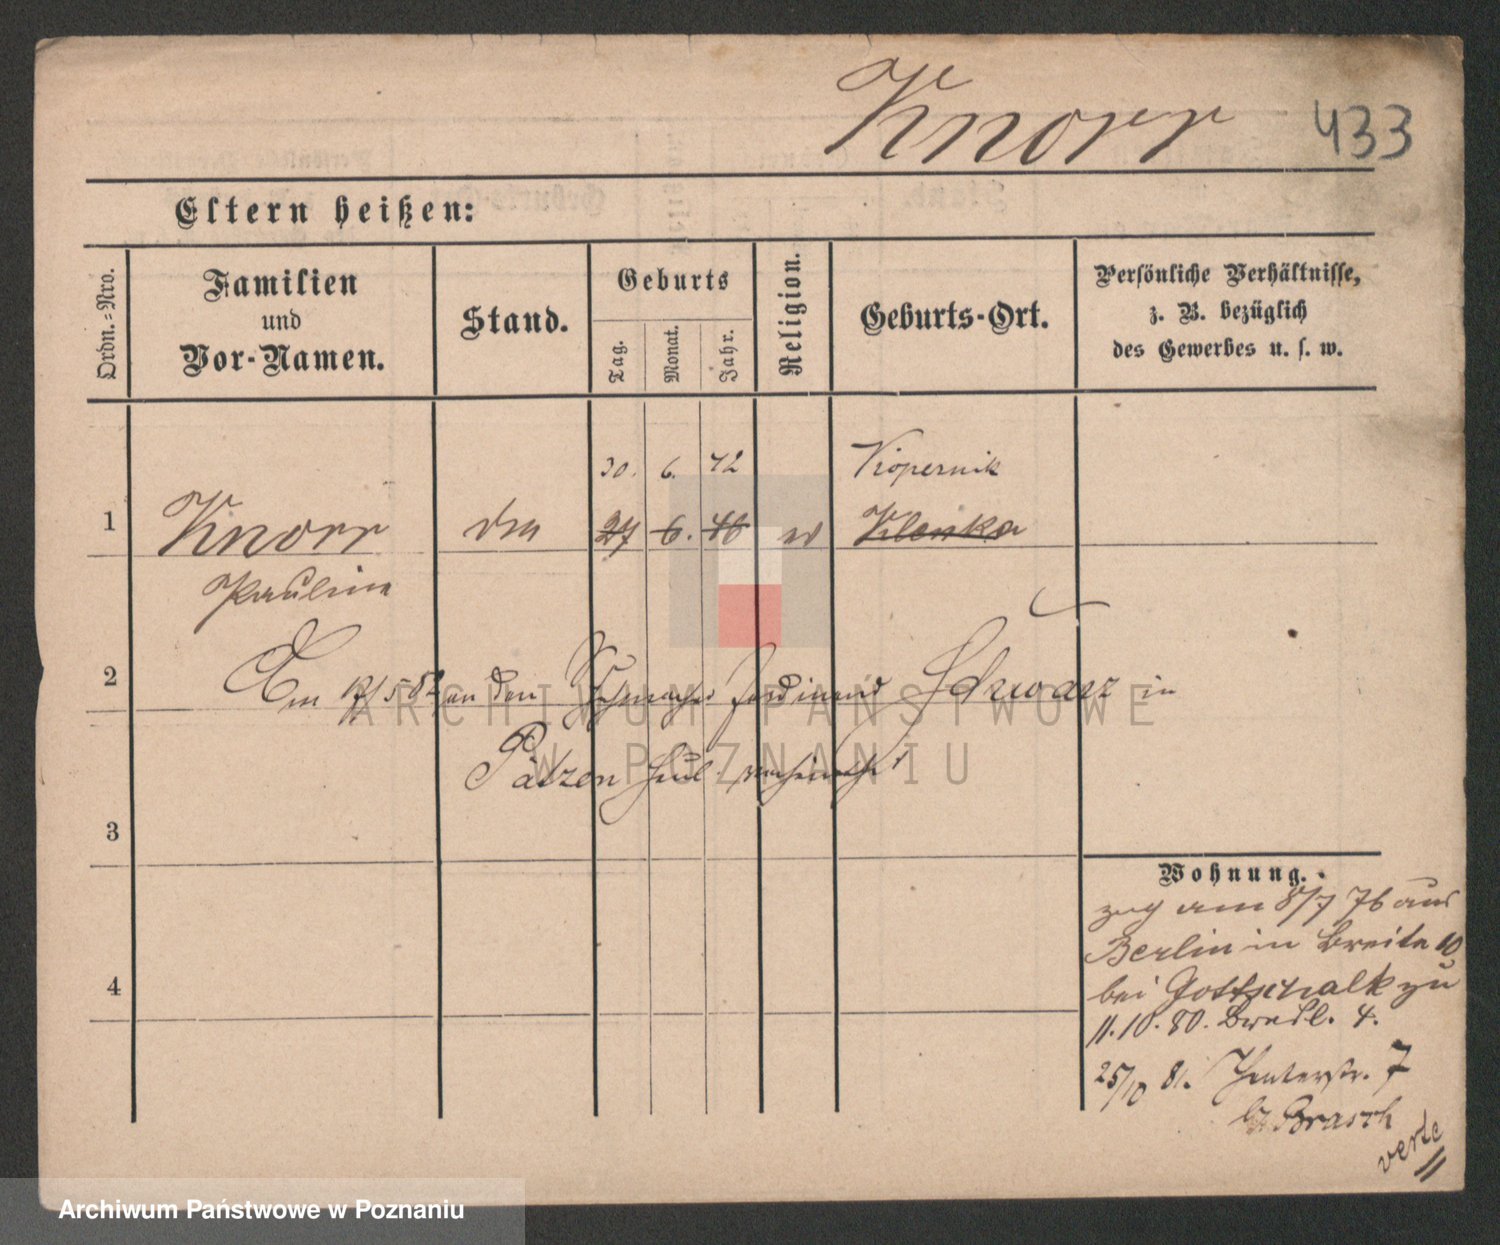 Knorr 433
Eltern heißen:
Ordn.-Nro.
Familien
und
Vor-Namen.
Stand.
Geburts
Tag.
Monat.
Jahr.
Religion.
Geburts-Ort.
Persönliche Verhältnisse,
z. B. bezüglich
des Gewerbes u. s. w.
30. 6. 42 Kopernik
1 Knorr 27 6. 46 Klenka
Pauline
2 Am 17/5 82 an den Ferdinand Schwarz in
Patzen
3
Wohnung.
zug am 8/7 76 aus
Berlin in Breite 10
4 bei Gottschalk zu
11.10.80. 4.
25/10 81. 7
b/ Brasch
verte
ARCHIWUM PAŃSTWOWE
W POZNANIU
Archiwum Państwowe w Poznaniu